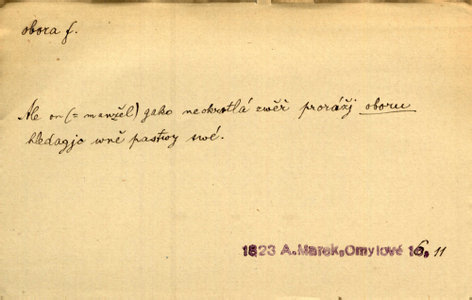 obora f.
Ale on (= manžel) gako nezkrotlá zwěř prorážj oboru
hledagjc wně pastwy swé.
1823 A. Marek, Omylové 16, 11